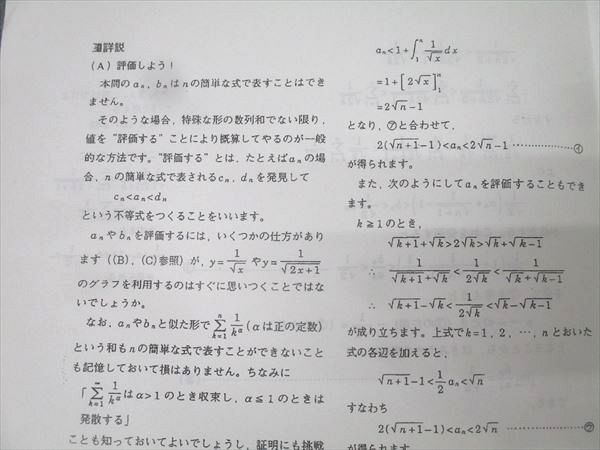 詳説
（A）評価しよう！
本問のaₙ，bₙはnの簡単な式で表すことはでき
ません。
そのような場合，特殊な形の数列和でない限り，
値を“評価する”ことにより概算してやるのが一般
的な方法です。“評価する”とは，たとえばaₙの場
合，nの簡単な式で表されるcₙ，dₙを発見して
cₙ<aₙ<dₙ
という不等式をつくることをいいます。
aₙやbₙを評価するには，いくつかの仕方があり
ます（(B)，(C)参照）が，y=1/√x やy=1/√(2x+1)
のグラフを利用するのはすぐに思いつくことではな
いでしょうか。
なお，aₙやbₙと似た形でΣ[k=1→n] 1/k^α（αは正の定数）
という和もnの簡単な式で表すことができないこと
も記憶しておいて損はありません。ちなみに
「Σ[k=1→∞] 1/k^αはα>1のとき収束し，α≦1のときは
発散する」
ことも知っておいてよいでしょうし，証明にも挑戦
aₙ<1+∫[1→n] 1/√x dx
=1+[2√x]₁ⁿ
=2√n−1
となり，㋐と合わせて，
2(√(n+1)−1)<aₙ<2√n−1 ……㋑
が得られます。
また，次のようにしてaₙを評価することもでき
ます。
k≧1のとき，
√(k+1)+√k>2√k>√k+√(k−1)
∴ 1/(√(k+1)+√k)<1/(2√k)<1/(√k+√(k−1))
∴ √(k+1)−√k<1/(2√k)<√k−√(k−1)
が成り立ちます。上式でk=1，2，…，nとおいた
式の各辺を加えると，
√(n+1)−1<1/2 aₙ<√n
すなわち
2(√(n+1)−1)<aₙ<2√n ……㋒
が得られます